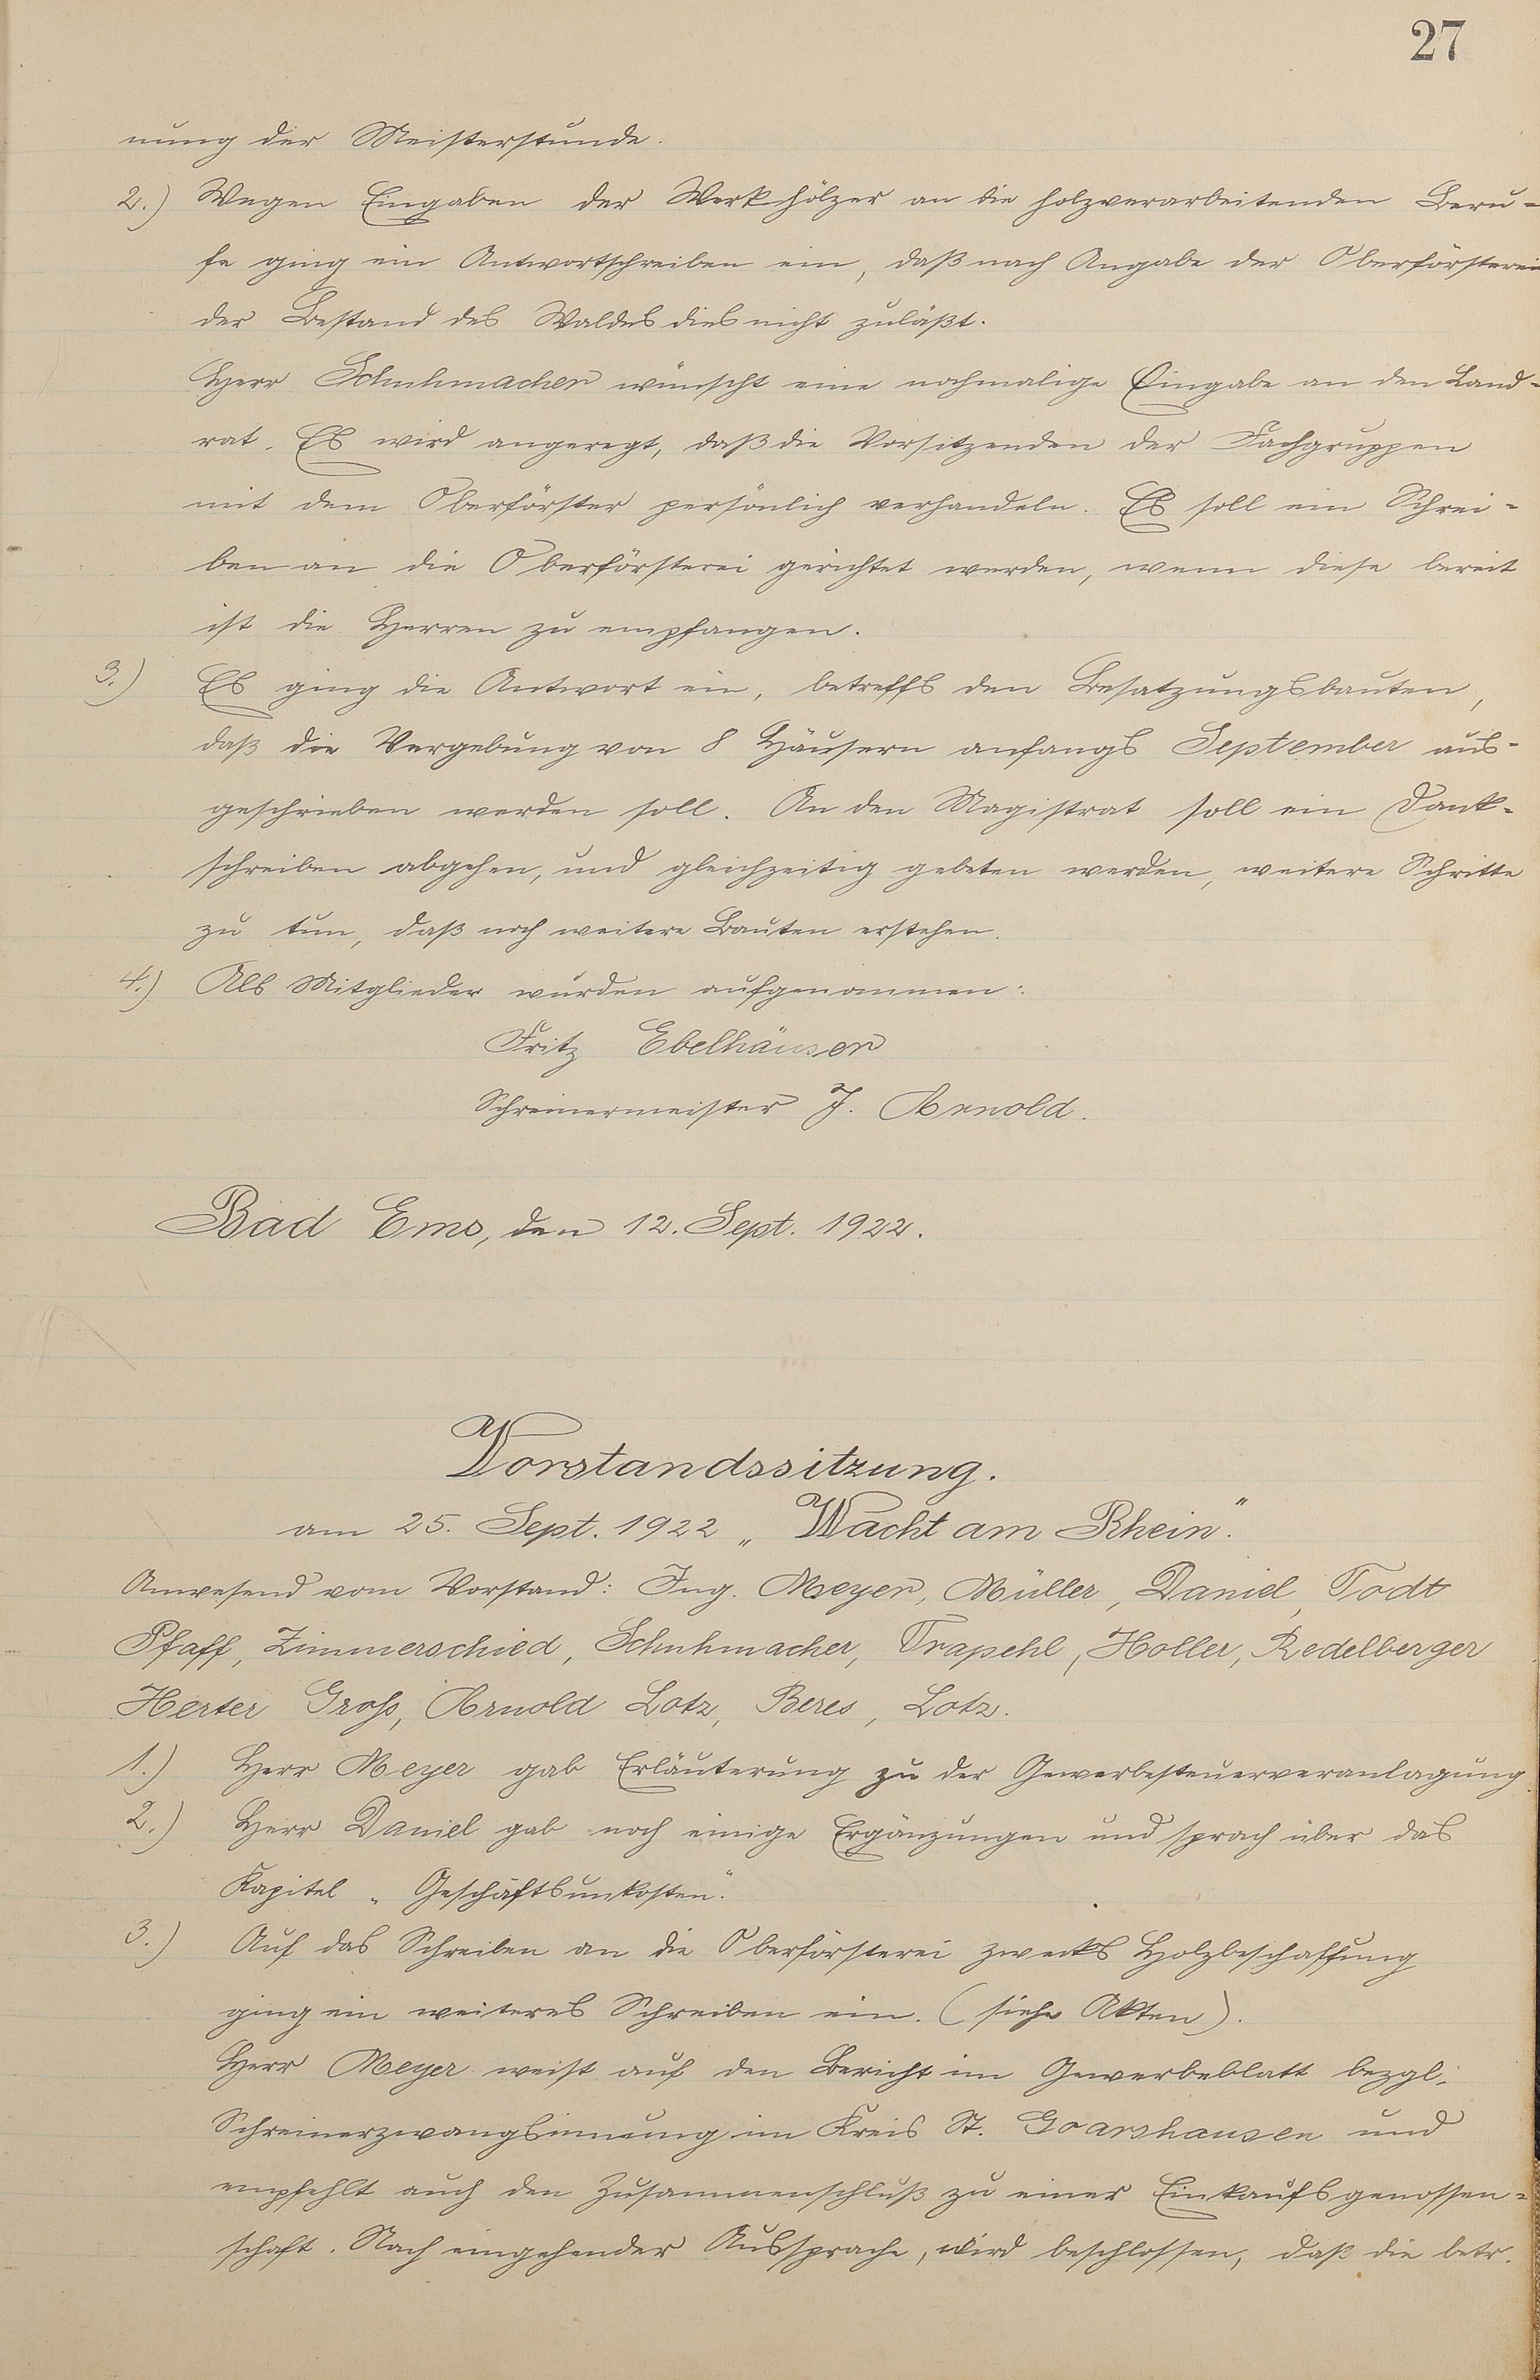 27
nung der Meisterstunde.
2.) Wegen Eingaben der Werkhölzer an die holzverarbeitenden Beru-
fe ging ein Antwortschreiben ein, daß nach Angabe der Oberförsterei
der Bestand des Waldes dies nicht zuläßt.
Herr Schuhmacher wünscht eine nochmalige Eingabe an den Land-
rat. Es wird angeregt, daß die Vorsitzenden der Fachgruppen
mit dem Oberförster persönlich verhandeln. Es soll ein Schrei-
ben an die Oberförsterei gerichtet werden, wenn diese bereit
ist die Herren zu empfangen.
3.) Es ging die Antwort ein, betreffs den Besatzungsbauten,
daß die Vergebung von 8 Häusern anfangs September aus-
geschrieben werden soll. An den Magistrat soll ein Dank-
schreiben abgehen, und gleichzeitig gebeten werden, weitere Schritte
zu tun, daß noch weitere Bauten erstehen.
4.) Als Mitglieder wurden aufgenommen:
Fritz Ebelhäuser
Schreinermeister J. Arnold.
Bad Ems, den 12. Sept. 1922.
Vorstandssitzung.
am 25. Sept. 1922 „Wacht am Rhein."
Anwesend vom Vorstand: Ing. Meyer, Müller, Daniel, Todt
Pfaff, Zimmerschied, Schuhmacher, Trapehl, Holler, Redelberger
Herter Groß, Arnold Lotz, Beres, Lotz.
1.) Herr Meyer gab Erläuterung zu der Gewerbesteuerveranlagung.
2.) Herr Daniel gab noch einige Ergänzungen und sprach über das
Kapitel „Geschäftsunkosten."
3.) Auf das Schreiben an die Oberförsterei zwecks Holzbeschaffung
ging ein weiteres Schreiben ein. (siehe Akten).
Herr Meyer weist auf den Bericht im Gewerbeblatt bezgl.
Schreinerzwangsinnung im Kreis St. Goarshausen und
empfehlt auch den Zusammenschluß zu einer Einkaufsgenossen-
schaft. Nach eingehender Aussprache, wird beschlossen, daß die betr.